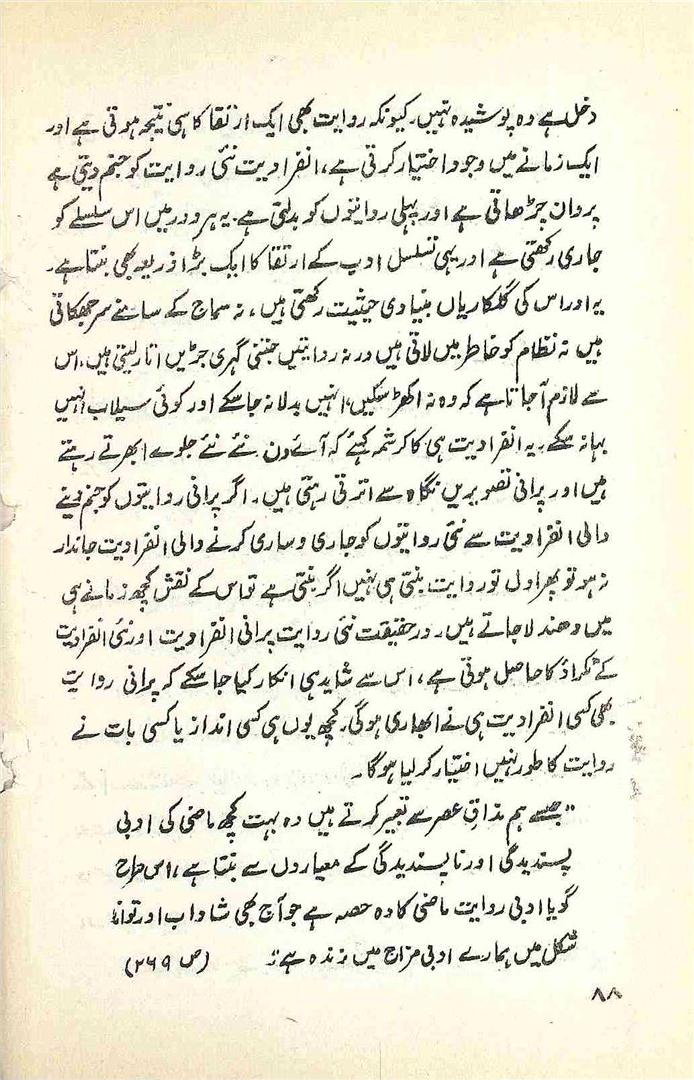 دخل ہے وہ پوشیدہ نہیں۔ کیونکہ روایت بھی ایک ارتقا کا ہی نتیجہ ہوتی ہے اور
ایک زمانے میں وجود اختیار کرتی ہے، انفرادیت نئی روایت کو جنم دیتی ہے
پروان چڑھاتی ہے اور پہلی روایتوں کو بدلتی ہے۔ یہ ہر دور میں اس سلسلے کو
جاری رکھتی ہے اور یہی تسلسل ادب کے ارتقا کا ایک بڑا ذریعہ بھی بنتا ہے۔
یہ اور اس کی گلکاریاں بنیادی حیثیت رکھتی ہیں، نہ سماج کے سامنے سر جھکاتی
ہیں نہ نظام کو خاطر میں لاتی ہیں ورنہ روایتیں جتنی گہری جڑیں اتار لیتی ہیں۔ اس
سے لازم آجاتا ہے کہ وہ نہ اکھڑ سکیں، انہیں بدلا نہ جاسکے اور کوئی سیلاب انہیں
بہا نہ سکے۔ یہ انفرادیت ہی کا کرشمہ کہئے کہ آئے دن نئے نئے جلوے ابھرتے رہتے
ہیں اور پرانی تصویریں نگاہ سے اترتی رہتی ہیں۔ اگر پرانی روایتوں کو جنم دینے
والی انفرادیت سے نئی روایتوں کو جاری و ساری کرنے والی انفرادیت جاندار
نہ ہو تو پھر اول تو روایت بنتی ہی نہیں اگر بنتی ہے تو اس کے نقش کچھ زمانے ہی
میں دھندلا جاتے ہیں۔ درحقیقت نئی روایت پرانی انفرادیت اور نئی انفرادیت
کے ٹکراؤ کا حاصل ہوتی ہے، اس سے شاید ہی انکار کیا جاسکے کہ پرانی روایت
بھی کسی انفرادیت ہی نے ابھاری ہوگی۔ کچھ یوں ہی کسی انداز یا کسی بات نے
روایت کا طور نہیں اختیار کر لیا ہوگا۔
"جسے ہم مذاقِ عصر سے تعبیر کرتے ہیں وہ بہت کچھ ماضی کی ادبی
پسندیدگی اور ناپسندیدگی کے معیاروں سے بنتا ہے، اس طرح
گویا ادبی روایت ماضی کا وہ حصہ ہے جو آج بھی شاداب اور توانا
شکل میں ہمارے ادبی مزاج میں زندہ ہے" (ص ۲۶۹)
۸۸